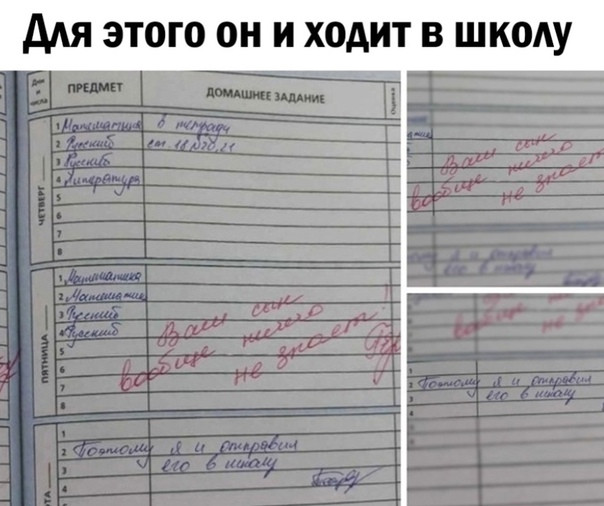 Для этого он и ходит в школу
Дни
и
числа
ПРЕДМЕТ
ДОМАШНЕЕ ЗАДАНИЕ
Оценка
ЧЕТВЕРГ
1 Математика в тетради
2 Русский ст. 18 №20, 21
3 Русский
4 Литература
5
6
7
8
ПЯТНИЦА
1 Математика
2 Математика
3 Русский
4 Русский
5
6
7
8
Ваш сын
вообще ничего
не знает!
1
2 Поэтому я и отправил
3 его в школу
4
Ваш сын
вообще ничего
не знает
Поэтому я и отправил
его в школу